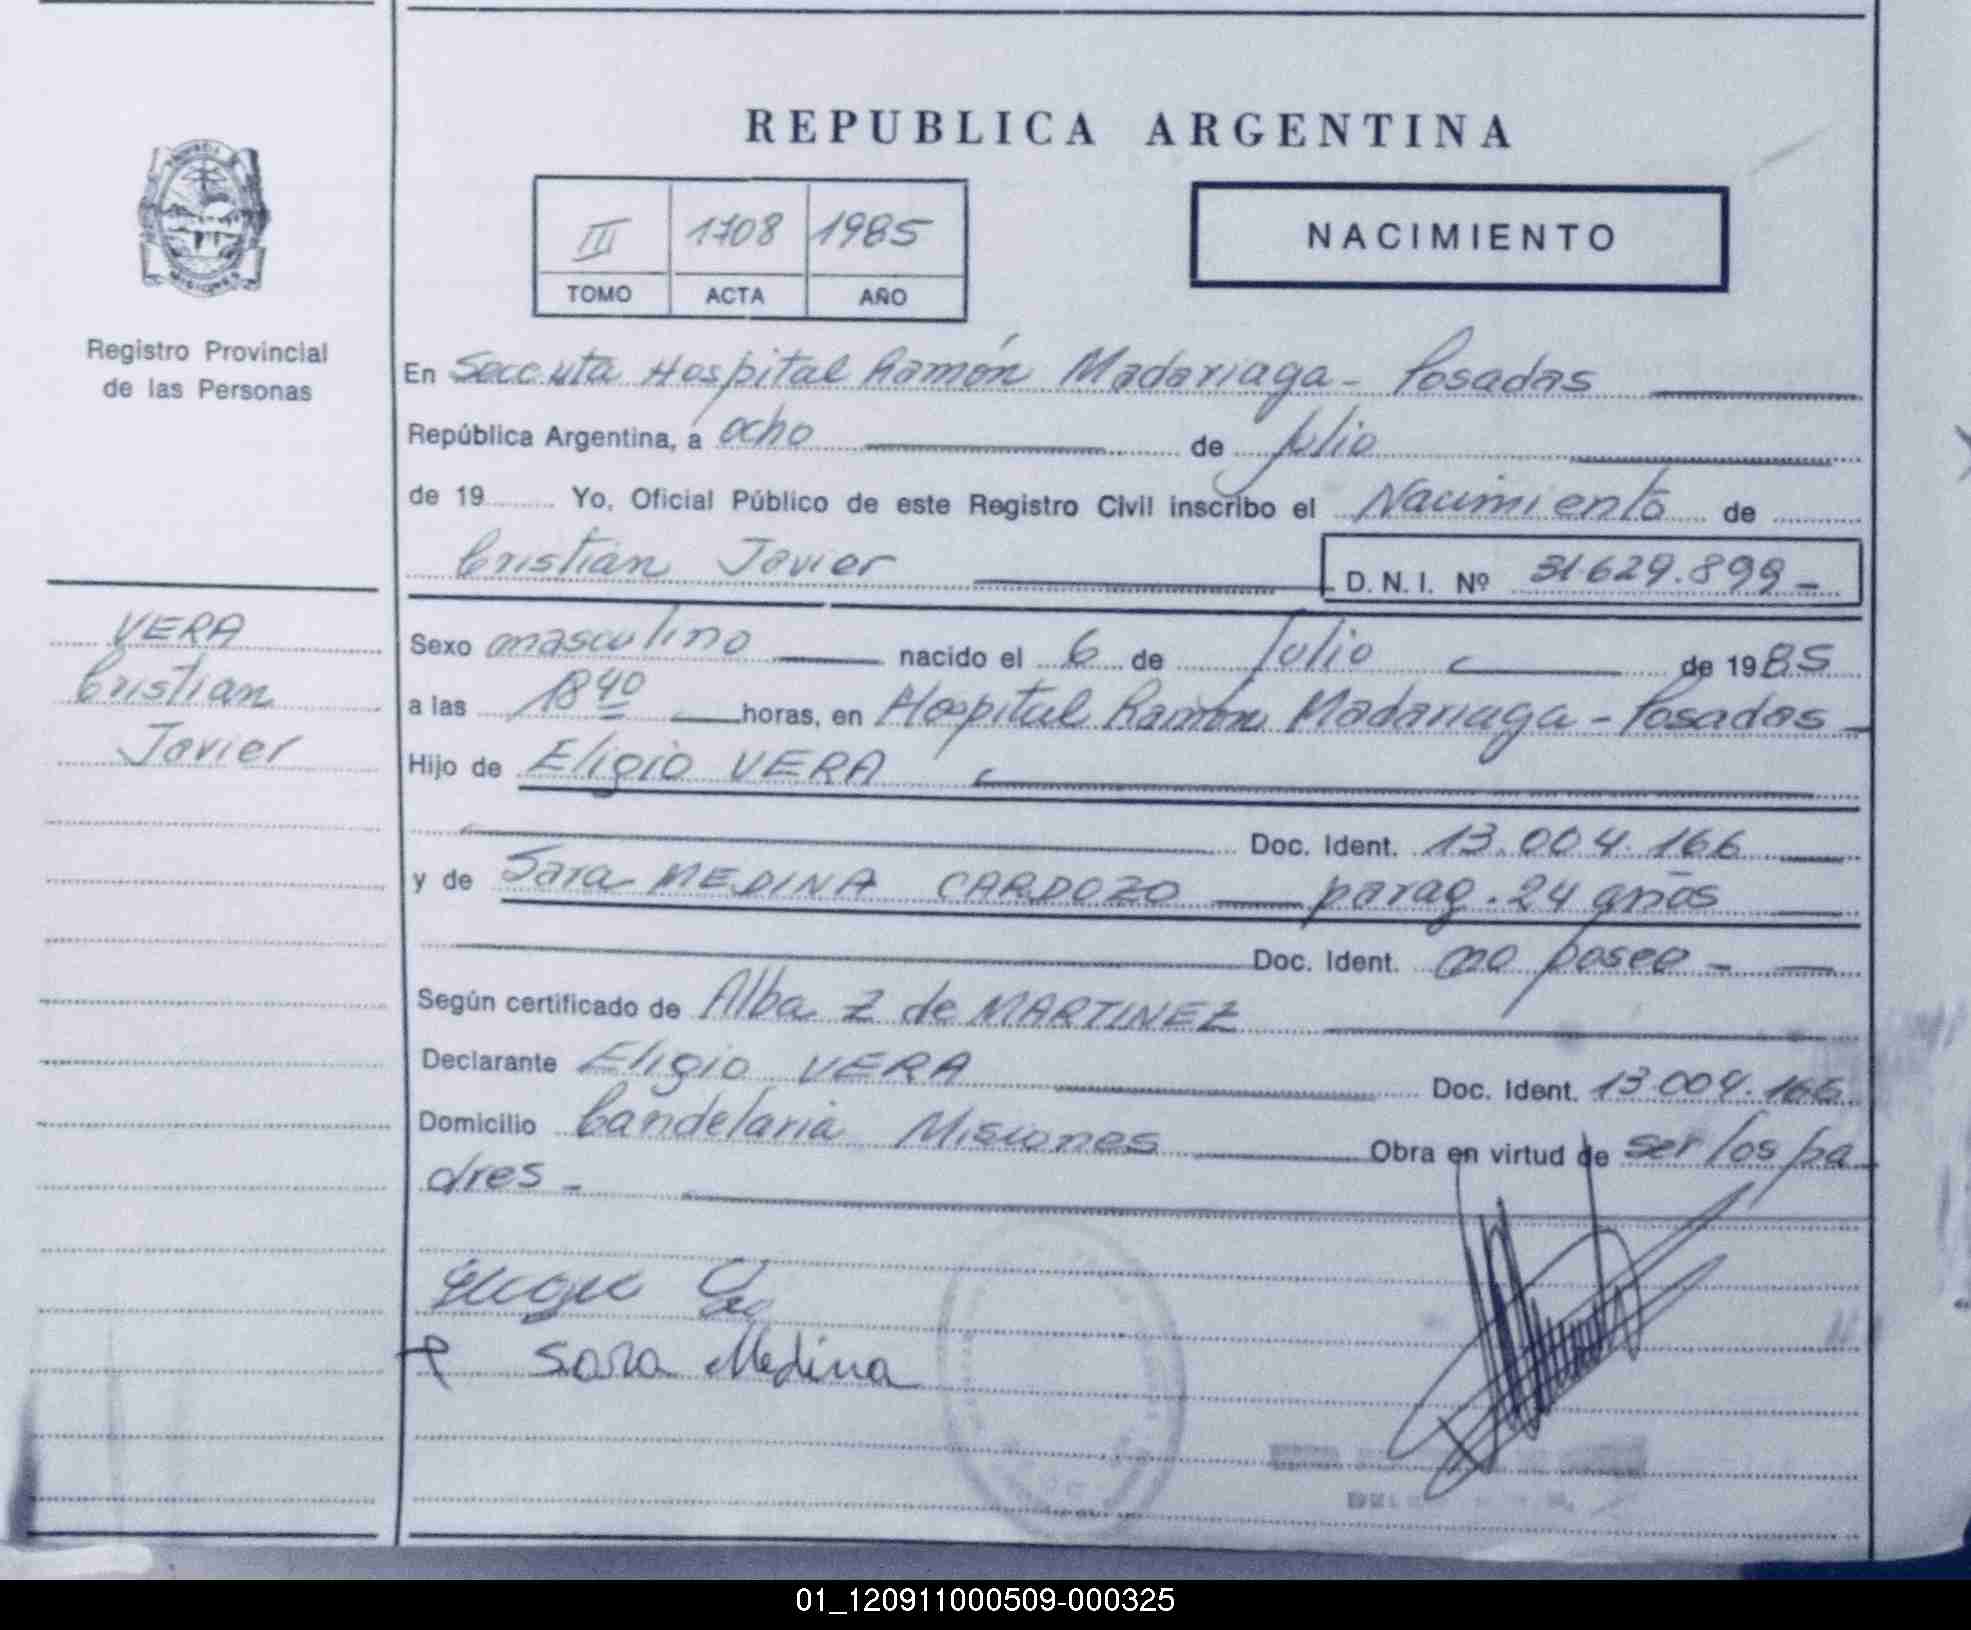 REPUBLICA ARGENTINA
III 1708 1985
TOMO ACTA AÑO
NACIMIENTO
Registro Provincial
de las Personas
VERA
Cristian
Javier
En Seccuta Hospital Ramón Madariaga - Posadas
República Argentina, a ocho de Julio
de 19 Yo, Oficial Público de este Registro Civil inscribo el Nacimiento de
Cristian Javier D. N. I. Nº 31.629.899-
Sexo masculino nacido el 6 de Julio de 1985
a las 18 40 horas, en Hospital Ramón Madariaga - Posadas -
Hijo de Eligio VERA
Doc. Ident. 13.004.166
y de Sara MEDINA CARDOZO parag. 24 años
Doc. Ident. no posee -
Según certificado de Alba Z de MARTINEZ
Declarante Eligio VERA Doc. Ident. 13.004.166
Domicilio Candelaria Misiones Obra en virtud de ser los pa
dres -
Sara Medina
01_120911000509-000325